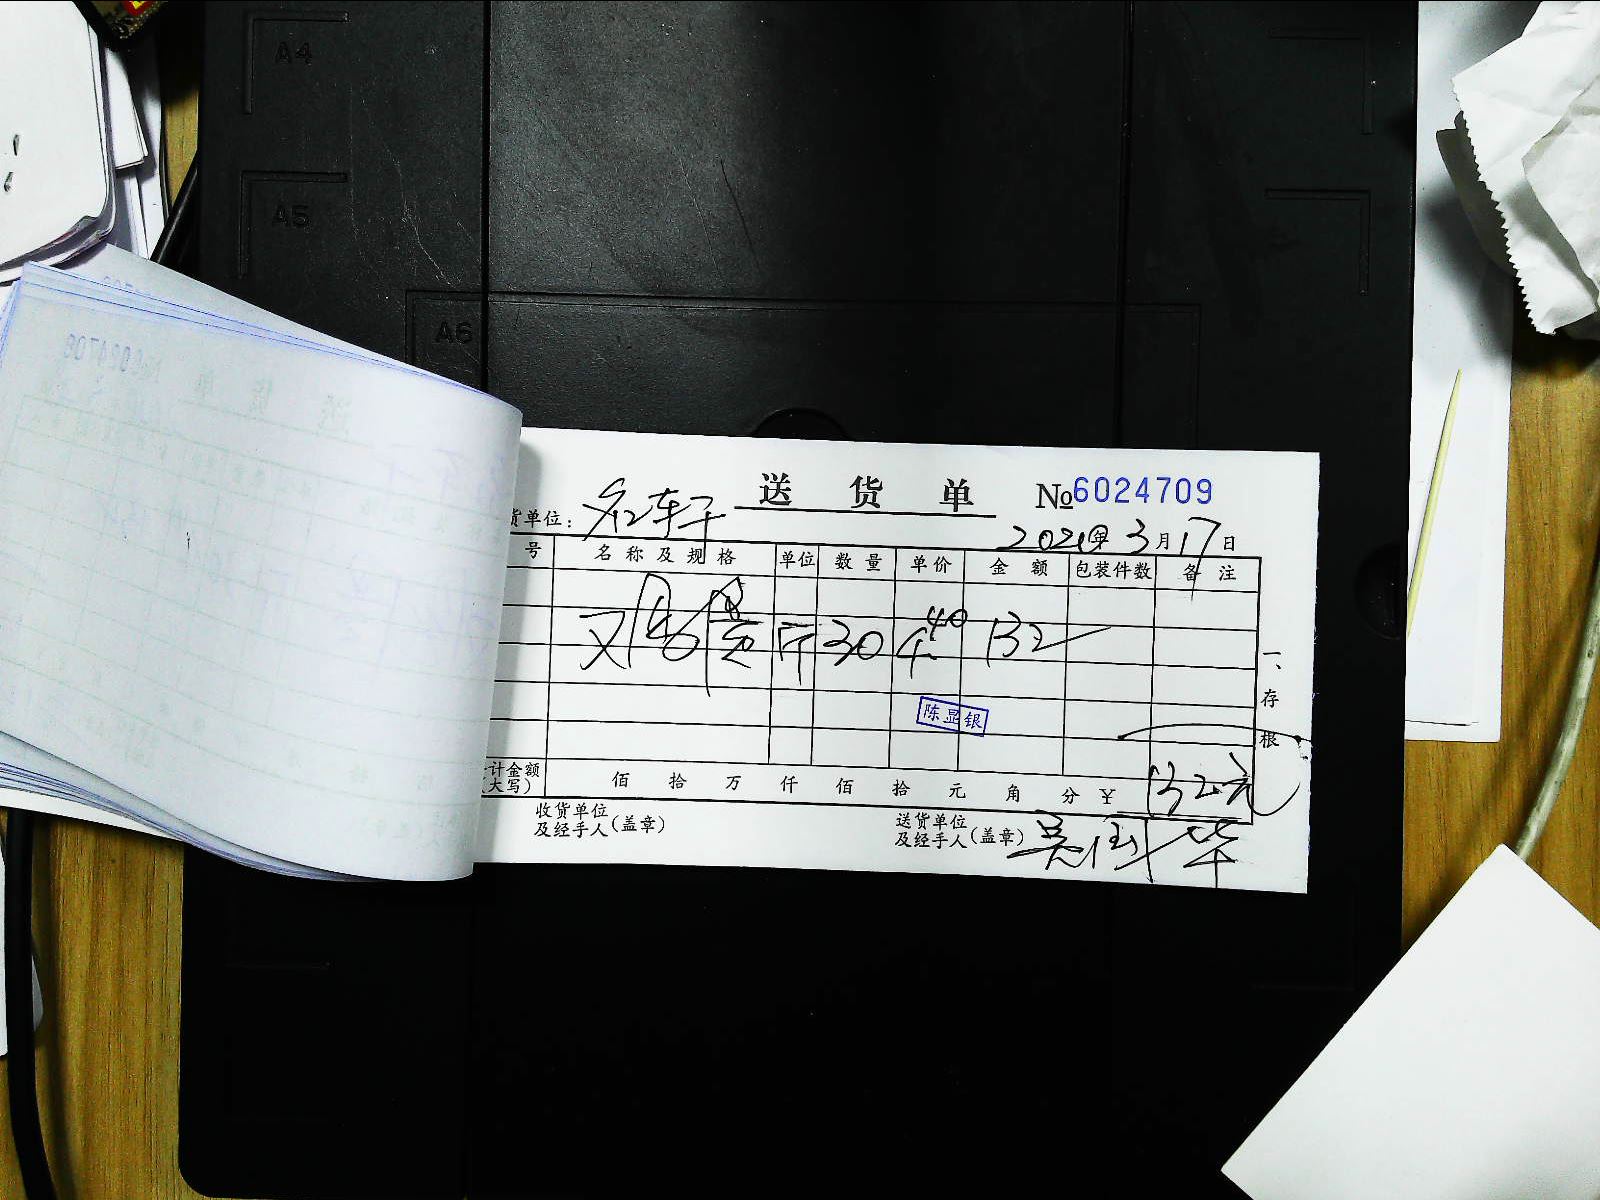 A4
A5
A6
送货单 №6024709
货单位：
2021年3月17日
号 名称及规格 单位 数量 单价 金额 包装件数 备注
斤 30 4.40 132
陈显银
一、存根
计金额（大写） 佰 拾 万 仟 佰 拾 元 角 分 ¥ 132元
收货单位及经手人(盖章)
送货单位及经手人(盖章) 吴国华